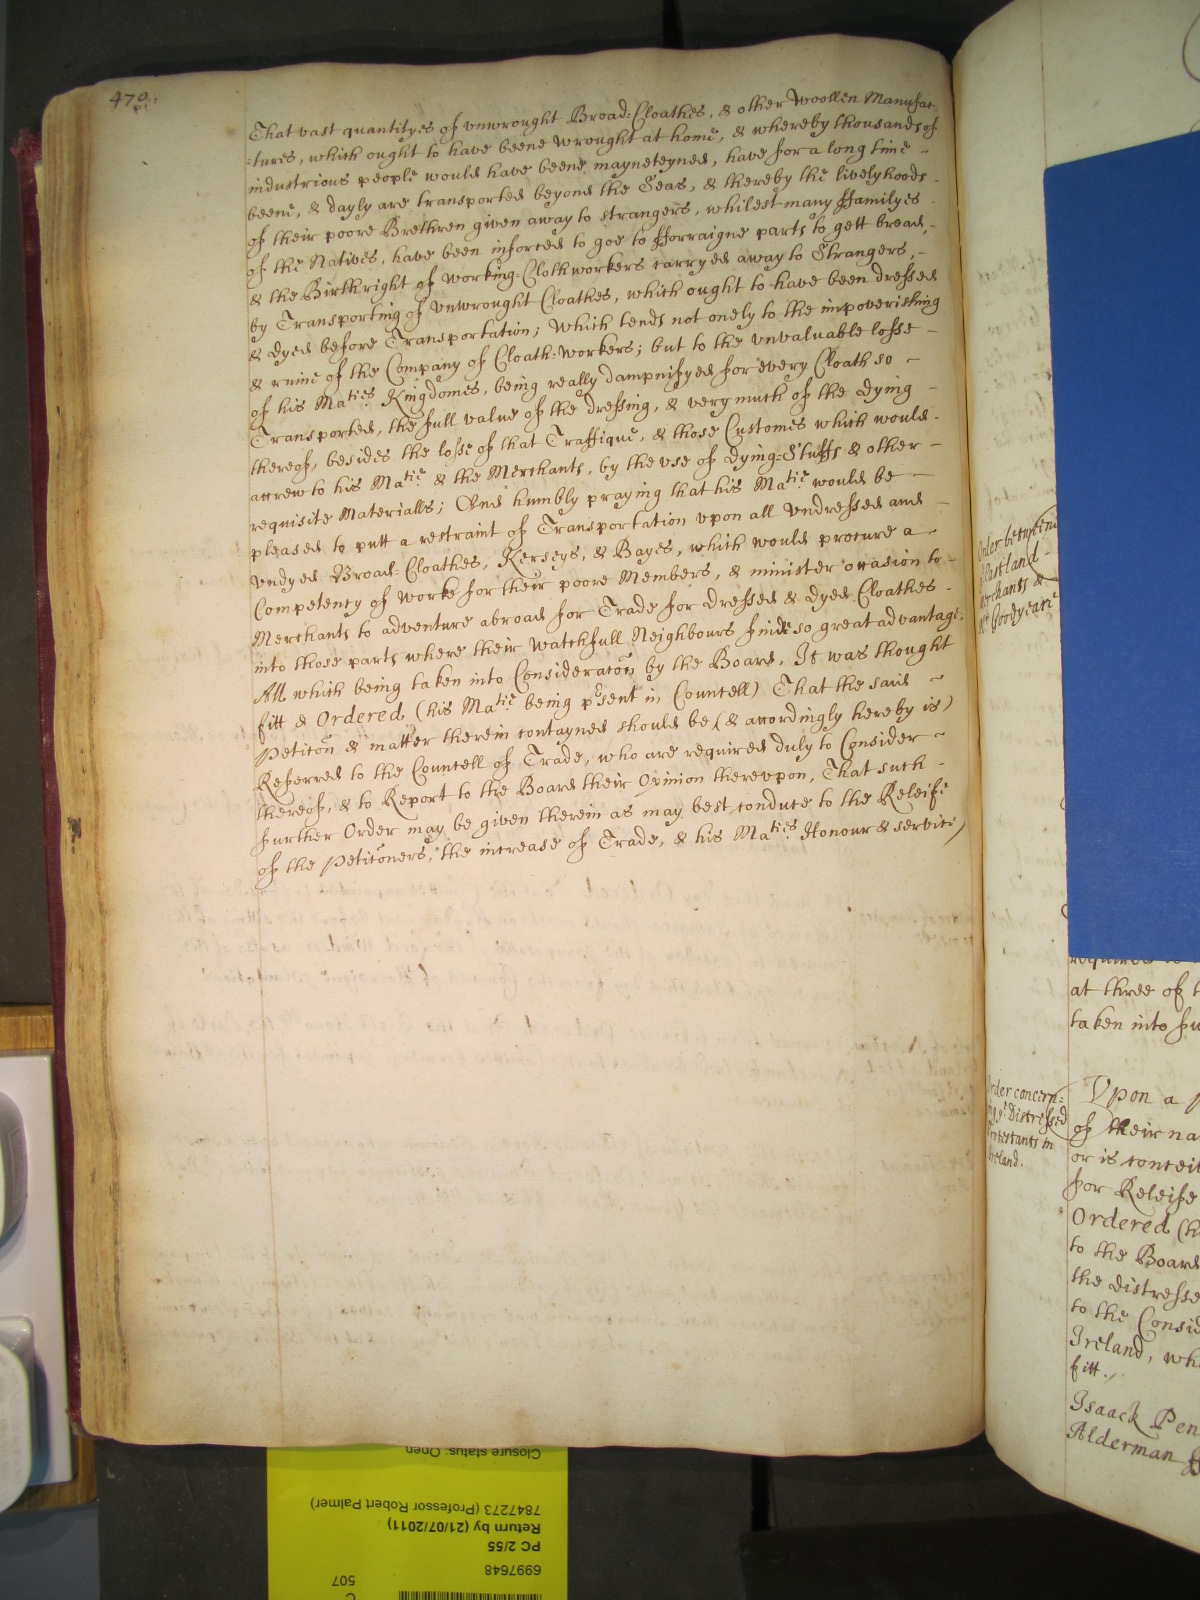 470.
That vast quantityes of vnwrought Broad-Cloathes, & other Woollen Manufac-
-tures, which ought to have beene wrought at home, & whereby thousands of
industrious people would have beene mayneteyned, have for a long time
beene, & dayly are transported beyond the Seas, & thereby the livelyhoods
of their poore Brethren given away to strangers, whilest many ffamilyes
of the Natives, have been inforced to goe to fforraigne parts to gett bread,
& the Birthright of Working-Clothworkers carryed away to Strangers,
by Transporting of vnwrought Cloathes, which ought to have been dressed
& dyed before Transportation; Which tends not onely to the impoverishing
& ruine of the Company of Cloath-workers; but to the vnvaluable losse
of his Maties Kingdomes, being really dampnifyed for every Cloath so
Transported, the full value of the dressing, & very much of the Dying
thereof, besides the losse of that Traffique, & those Customes which would
accrew to his Matie & the Merchants, by the vse of Dying-Stuffs & other
requisite Materialls; And humbly praying that his Matie would be
pleased to putt a restraint of Transportation vpon all vndressed and
vndyed Broad-Cloathes, Kerseys, & Bayes, which would procure a
Competency of worke for their poore Members, & minister occasion to
Merchants to adventure abroad for Trade for dressed & dyed Cloathes
into those parts where their watchfull Neighbours finde so great advantage.
All which being taken into Consideratōn by the Board, It was thought
fitt & Ordered (his Matie being p̄sent in Councell) That the said
Petitōn & matter therein contayned should be (& accordingly hereby is)
Referred to the Councell of Trade, who are required duly to Consider
thereof, & to Report to the Board their Opinion therevpon, That such
further Order may be given therein as may best conduce to the Releife
of the Petitōners, the increase of Trade, & his Maties Honour & service)
Order between
Eastland
Merchants &
Mr Goodyeare
at three of
taken into
Order concern-
ing ye Distressed
Protestants in
Ireland.
Vpon a
of their
or is
for Releife
Ordered
to the Board
the distresse
to the
Ireland,
fitt.
Isaack Pen
Alderman
Closure status: Open
7847273 (Professor Robert Palmer)
Return by (21/07/2011)
PC 2/55
6997648
507